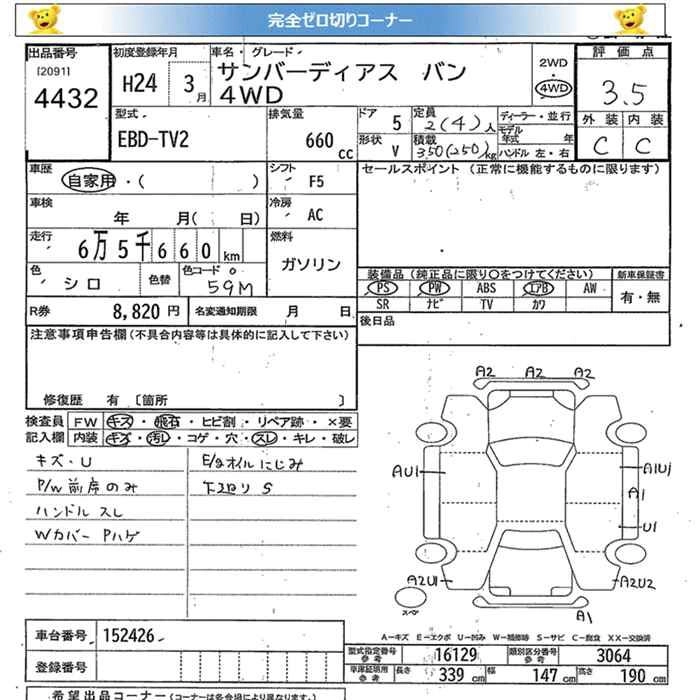 完全ゼロ切りコーナー
出品番号 初度登録年月 車名・グレード 評価点
[2091] H24 3月 サンバーディアス バン 2WD
4432 4WD ・4WD 3.5
型式 排気量 ドア 定員 ディーラー・並行 外装 内装
EBD-TV2 660cc 5 2(4)人 モデル年式 年 C C
形状 V 積載 350(250)kg ハンドル 左・右
車歴 自家用・( ) シフト F5 セールスポイント(正常に機能するものに限ります)
車検 年 月( 日) 冷房 AC
走行 6万5千660km 燃料 ガソリン
色 シロ 色替 色コード 59M 装備品(純正品に限り○をつけてください) 新車保証書
PS PW ABS エアB AW 有・無
R券 8,820円 名変通知期限 月 日 SR ナビ TV カワ
注意事項申告欄(不具合内容等は具体的に記入して下さい) 後日品
修復歴 有 [箇所 ]
検査員 FW キズ・飛石・ヒビ割・リペア跡・×要
記入欄 内装 キズ・汚レ・コゲ・穴・スレ・キレ・破レ
キズ・U E/gオイルにじみ
P/W前席のみ 下廻り S
ハンドル スレ
Wカバー Pハゲ
A2 A2 A2
AU1 A1Uj
A1
U1
A2U1 A2U2
スペア A1
A-キズ E-エクボ U-凹み W-補修跡 S-サビ C-腐食 XX-交換済
車台番号 152426 型式指定番号 参考 16129 類別区分番号 参考 3064
登録番号 車庫証明用 参考 長さ 339cm 幅 147cm 高さ 190cm
希望出品コーナー(コーナーは各会場により異なります。)